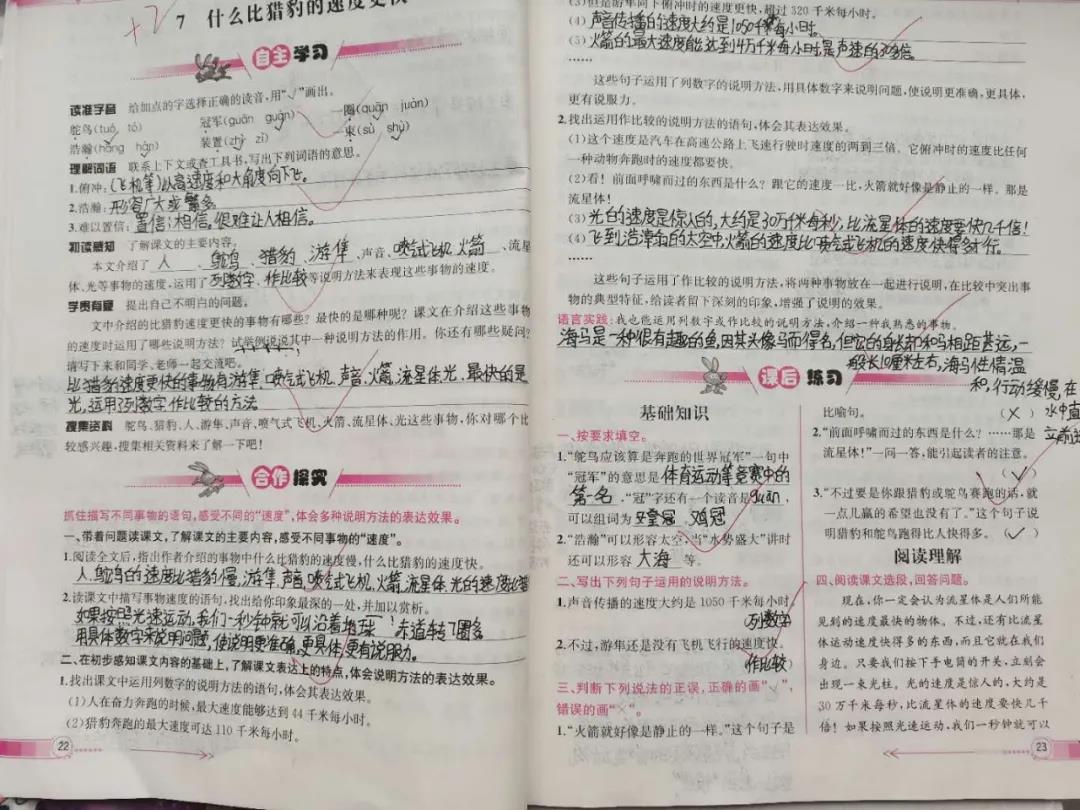 +2
7 什么比猎豹的速度更快
自主学习
读准字音 给加点的字选择正确的读音,用“√”画出。
鸵鸟(tuó tó) 冠军(guān guàn) 一圈(quān juàn)
浩瀚(hāng hàn) 装置(zhì zī) 一束(sù shù)
理解词语 联系上下文或查工具书,写出下列词语的意思。
1.俯冲:(飞机等)以高速度和大角度向下飞。
2.浩瀚:形容广大或繁多。
3.难以置信:置信:相信。很难让人相信。
初读感知 了解课文的主要内容。
本文介绍了 人、鸵鸟、猎豹、游隼、声音、喷气式飞机、火箭、流星
体、光等事物的速度,运用了列数字、作比较等说明方法来表现这些事物的速度。
学贵有疑 提出自己不明白的问题。
文中介绍的比猎豹速度更快的事物有哪些?最快的是哪种呢?课文在介绍这些事物
的速度时运用了哪些说明方法?试举例说说其中一种说明方法的作用。你还有哪些疑问?
请写下来和同学、老师一起交流吧。
比猎豹速度更快的事物有游隼、喷气式飞机、声音、火箭、流星体、光、最快的是
光,运用了列数字、作比较的方法。
搜集资料 鸵鸟、猎豹、人、游隼、声音、喷气式飞机、火箭、流星体、光这些事物,你对哪个比
较感兴趣,搜集相关资料来了解一下吧!
合作探究
抓住描写不同事物的语句,感受不同的“速度”,体会多种说明方法的表达效果。
一、带着问题读课文,了解课文的主要内容,感受不同事物的“速度”。
1.阅读全文后,指出作者介绍的事物中什么比猎豹的速度慢,什么比猎豹的速度快。
人、鸵鸟的速度比猎豹慢,游隼、声音、喷气式飞机、火箭、流星体、光的速度比猎
2.读课文中描写事物速度的语句,找出给你印象最深的一处,并加以赏析。
如果按照光速运动,我们一秒钟就可以沿着地球赤道转7圈多
用具体数字来说明问题,使说明更准确,更具体,更有说服力。
二、在初步感知课文内容的基础上,了解课文表达上的特点,体会说明方法的表达效果。
1.找出课文中运用列数字的说明方法的语句,体会其表达效果。
(1)人在奋力奔跑的时候,最大速度能够达到 44 千米每小时。
(2)猎豹奔跑的最大速度可达 110 千米每小时。
22
(3)但是游隼向下俯冲时的速度更快,超过 320 千米每小时。
(4)声音传播的速度大约是1050千米每小时。
(5)火箭的最大速度能达到4万千米每小时,是声速的30多倍。
……
这些句子运用了列数字的说明方法,用具体数字来说明问题,使说明更准确,更具体,
更有说服力。
2.找出运用作比较的说明方法的语句,体会其表达效果。
(1)这个速度是汽车在高速公路上飞速行驶时速度的两到三倍。它俯冲时的速度比任何
一种动物奔跑时的速度都要快。
(2)看!前面呼啸而过的东西是什么?跟它的速度一比,火箭就好像是静止的一样。那是
流星体!
(3)光的速度是惊人的,大约是30万千米每秒,比流星体的速度要快几千倍!
(4)飞到浩瀚的太空中,火箭的速度比喷气式飞机的速度快得多才行。
……
这些句子运用了作比较的说明方法,将两种事物放在一起进行说明,在比较中突出事
物的典型特征,给读者留下深刻的印象,增强了说明的效果。
语言实践:我也能运用列数字或作比较的说明方法,介绍一种我熟悉的事物。
海马是一种很有趣的鱼,因其头像马而得名,但它的身躯却和马相距甚远,一
般长10厘米左右,海马性情温
和,行动缓慢,在
水中直
课后练习
基础知识
一、按要求填空。
1.“鸵鸟应该算是奔跑的世界冠军”一句中
“冠军”的意思是体育运动等竞赛中的
第一名,“冠”字还有一个读音是guān,
可以组词为 皇冠、鸡冠
2.“浩瀚”可以形容太空,当“水势盛大”讲时
还可以形容 大海 等。
二、写出下列句子运用的说明方法。
1.声音传播的速度大约是 1050 千米每小时。
(列数字)
2.不过,游隼还是没有飞机飞行的速度快。
(作比较)
三、判断下列说法的正误,正确的画“√”,
错误的画“×”。
1.“火箭就好像是静止的一样。”这个句子是
比喻句。 (×)
2.“前面呼啸而过的东西是什么?……那是
流星体!”一问一答,能引起读者的注意。
(√)
3.“不过要是你跟猎豹或鸵鸟赛跑的话,就
一点儿赢的希望也没有了。”这个句子说
明猎豹和鸵鸟跑得比人快得多。 (√)
阅读理解
四、阅读课文选段,回答问题。
现在,你一定会认为流星体是人们所能
见到的速度最快的物体。不过,还有比流星
体运动速度快得多的东西,而且它就在我们
身边。只要我们按下手电筒的开关,立刻会
出现一束光柱。光的速度是惊人的,大约是
30 万千米每秒,比流星体的速度要快几千
倍!如果按照光速运动,我们一秒钟就可以
23